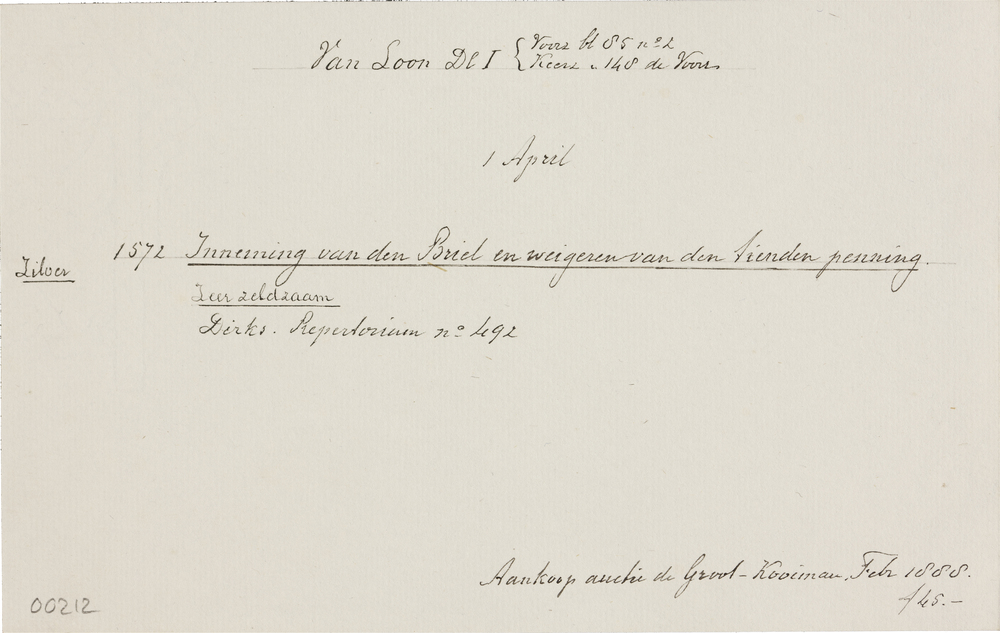 Van Loon Dl I { Voorz bl 85 nº 2
Keerz „ 148 de Voorz
1 April
Zilver
1572 Inneming van den Briel en weigeren van den tienden penning.
Zeer zeldzaam
Dirks. Repertorium nº 492
Aankoop auctie de Groot-Kooiman, Febr 1888.
f 45.–
00212